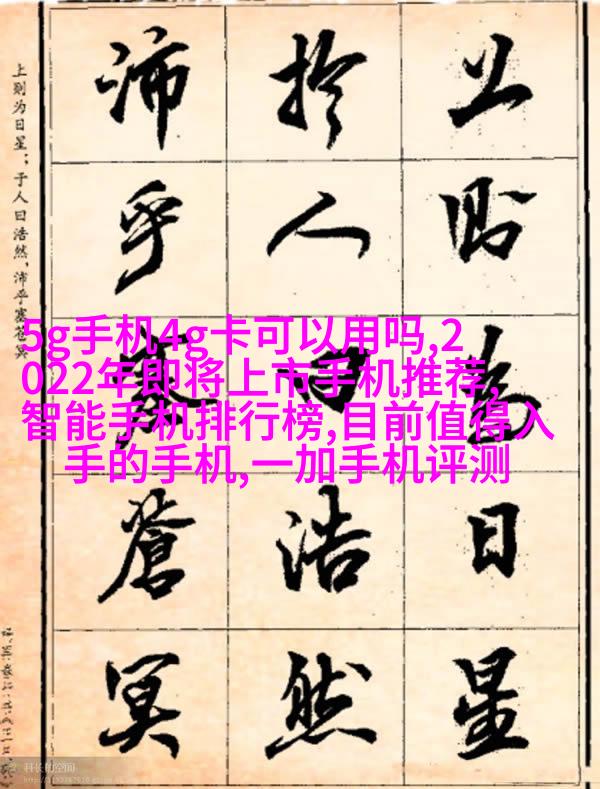 上則為日星
扵人曰浩然
沛乎塞蒼冥
上则为日星；于人曰浩然，沛乎塞苍冥
5g手机4g卡可以用吗,2
022年即将上市手机推荐,
智能手机排行榜,目前值得入
手的手机,一加手机评测
科长的空间